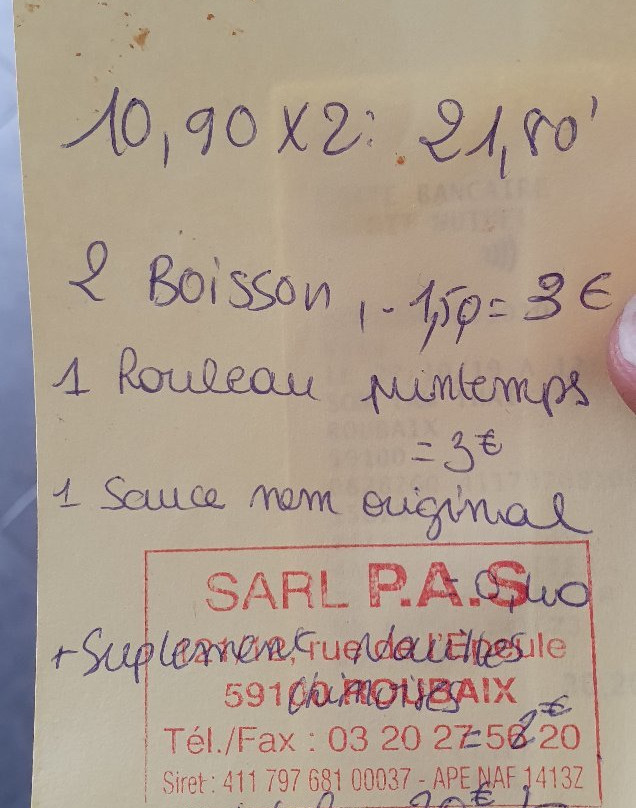 10,90 X 2: 21,80
2 Boisson, - 1,50 = 3 €
1 Rouleau printemps
= 3 €
1 Sauce nem original
0,40
SARL P.A.S
+ Suplement Nouilles
rue de l'Epeule
chinoises
59100 ROUBAIX
= 2 €
Tél./Fax : 03 20 27 56 20
Siret : 411 797 681 00037 - APE NAF 1413Z